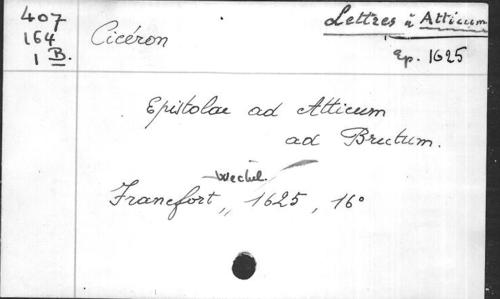 407
164
1 B.
Cicéron
Lettres à Atticum
Ep. 1625
Epistolae ad Atticum
ad Brutum.
Wechel.
Francfort ,, 1625, 16°